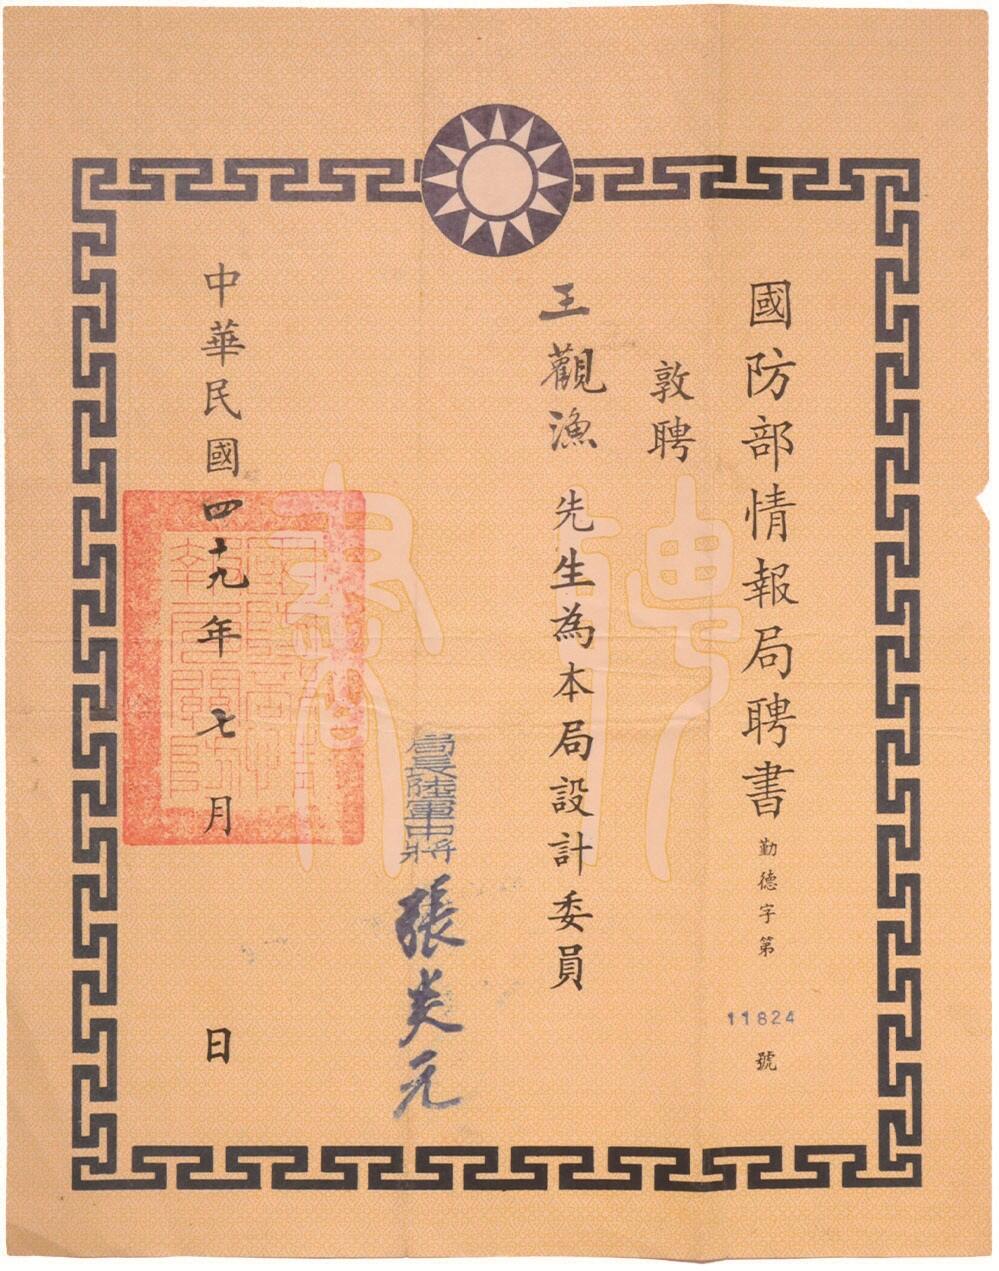 國防部情報局聘書 勤德字第 11824 號
敦聘
王觀漁 先生為本局設計委員
局長陸軍中將 張炎元
中華民國四十九年七月 日
聘